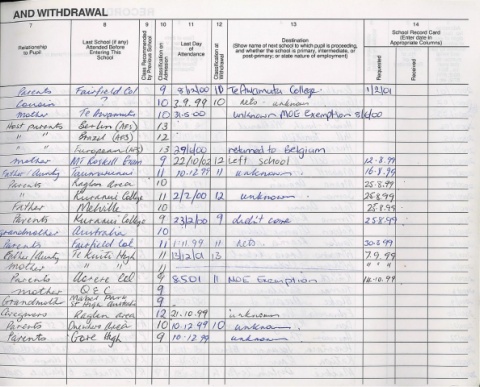 AND WITHDRAWAL
7 8 9 10 11 12 13 14
Relationship to Pupil
Last School (if any) Attended Before Entering This School
Class Recommended by Previous School
Classification on Admission
Last Day of Attendance
Classification at Withdrawal
Destination
(Show name of next school to which pupil is proceeding, and whether the school is primary, intermediate, or post-primary; or state nature of employment)
School Record Card
(Enter date in Appropriate Columns)
Requested
Received
Parents Fairfield Col 9 8/12/00 10 Te Awamutu College 1/2/01
Cousin ? 10 3.9.99 10 unknown
Mother Te Awamutu 10 31.5.00 unknown MOE Exemption
Host parents Berlin (AFS) 13
" " Brazil (AFS) 12
" " European (AFS) 13 returned to Belgium
mother Mt Roskill Gram 9 22/10/02 12 Left school 12.8.99
Father/Aunty Taumarunui 11 10.12.99 11 unknown 16.8.99
Parents Raglan Area 10 25.8.99
" Kuranui College 11 2/2/00 12 unknown 25.8.99
Father Melville 10 25.8.99
Parents Kuranui College 9 23/2/00 9 didn't come 25.8.99
Grandmother Australia 10
Parents Fairfield Col 11 1.11.99 11
Father/Aunty Te Kuiti High 11 13/12/01 13 7.9.99
Mother " " 11 " " "
Parents 9 8.5.01 11 MOE Exemption
mother 9
Grandmother St High Australia 9
Caregivers Raglan area 12 21.10.99 unknown
Parents area 10 10.12.99 10 unknown
Parents Gore High 9 10.12.99 unknown